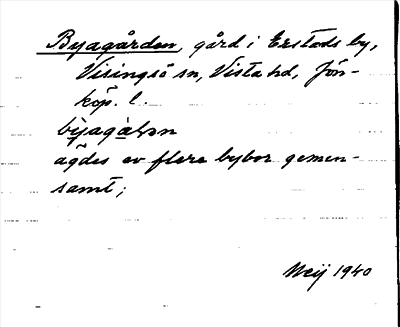 Byagården, gård i Erstads by,
Visingsö sn, Vista hd, Jön-
köp. l.
byaga̱ḷən
ägdes av flera bybor gemen-
samt;
Meij 1940